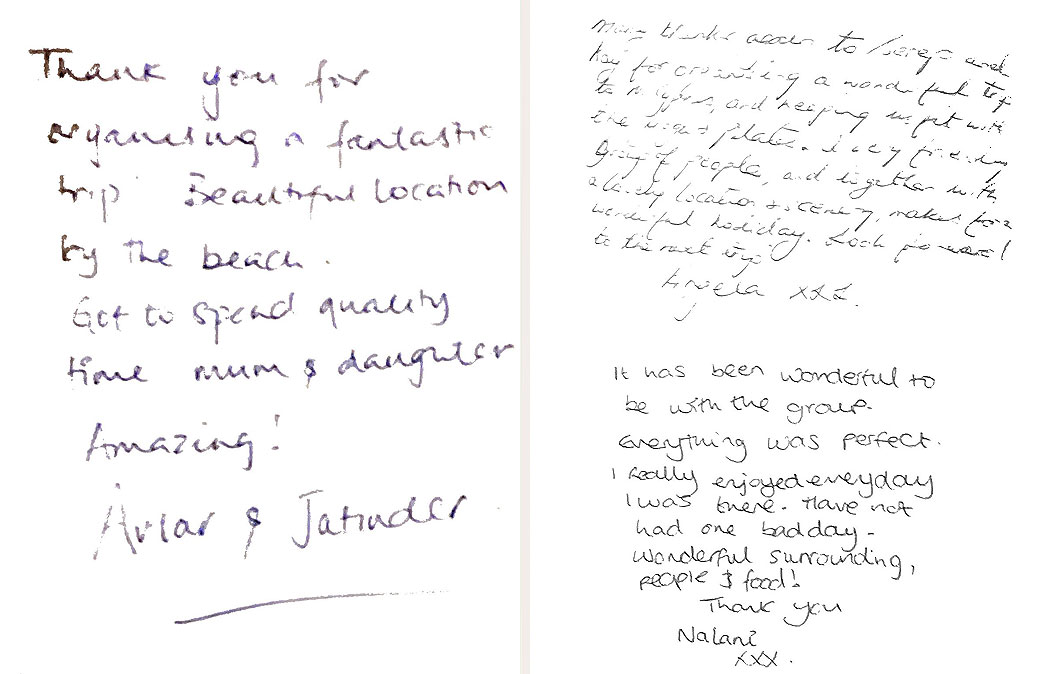 Thank you for
organising a fantastic
trip Beautiful location
by the beach.
Got to spend quality
time mum & daughter
Amazing!
Avtar & Jatinder
Many thanks again to and
Kay for organising a wonderful trip
to and keeping us fit with
the Pilates. very friendly
Group of people, and together with
a lovely location & scenery, makes for a
wonderful holiday. Look forward
to the next trip
Angela xxx.
It has been wonderful to
be with the group.
Everything was perfect.
I really enjoyed everyday
I was there. Have not
had one bad day -
wonderful surrounding,
people & food!
Thank you
Nalani
xxx.